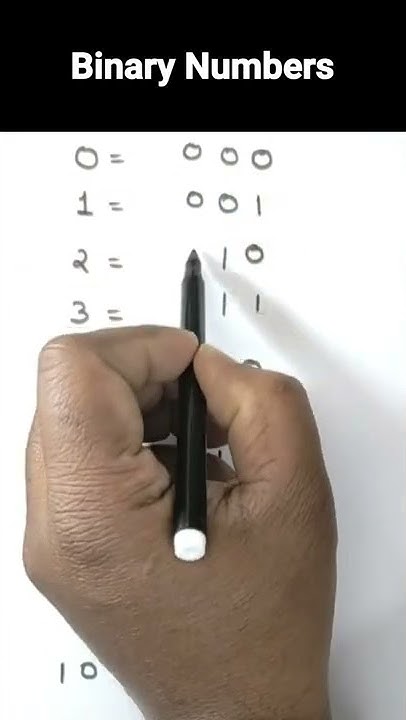 Binary Numbers
0 = 0 0 0
1 = 0 0 1
2 = 1 0
3 = 1 1
0
1 0